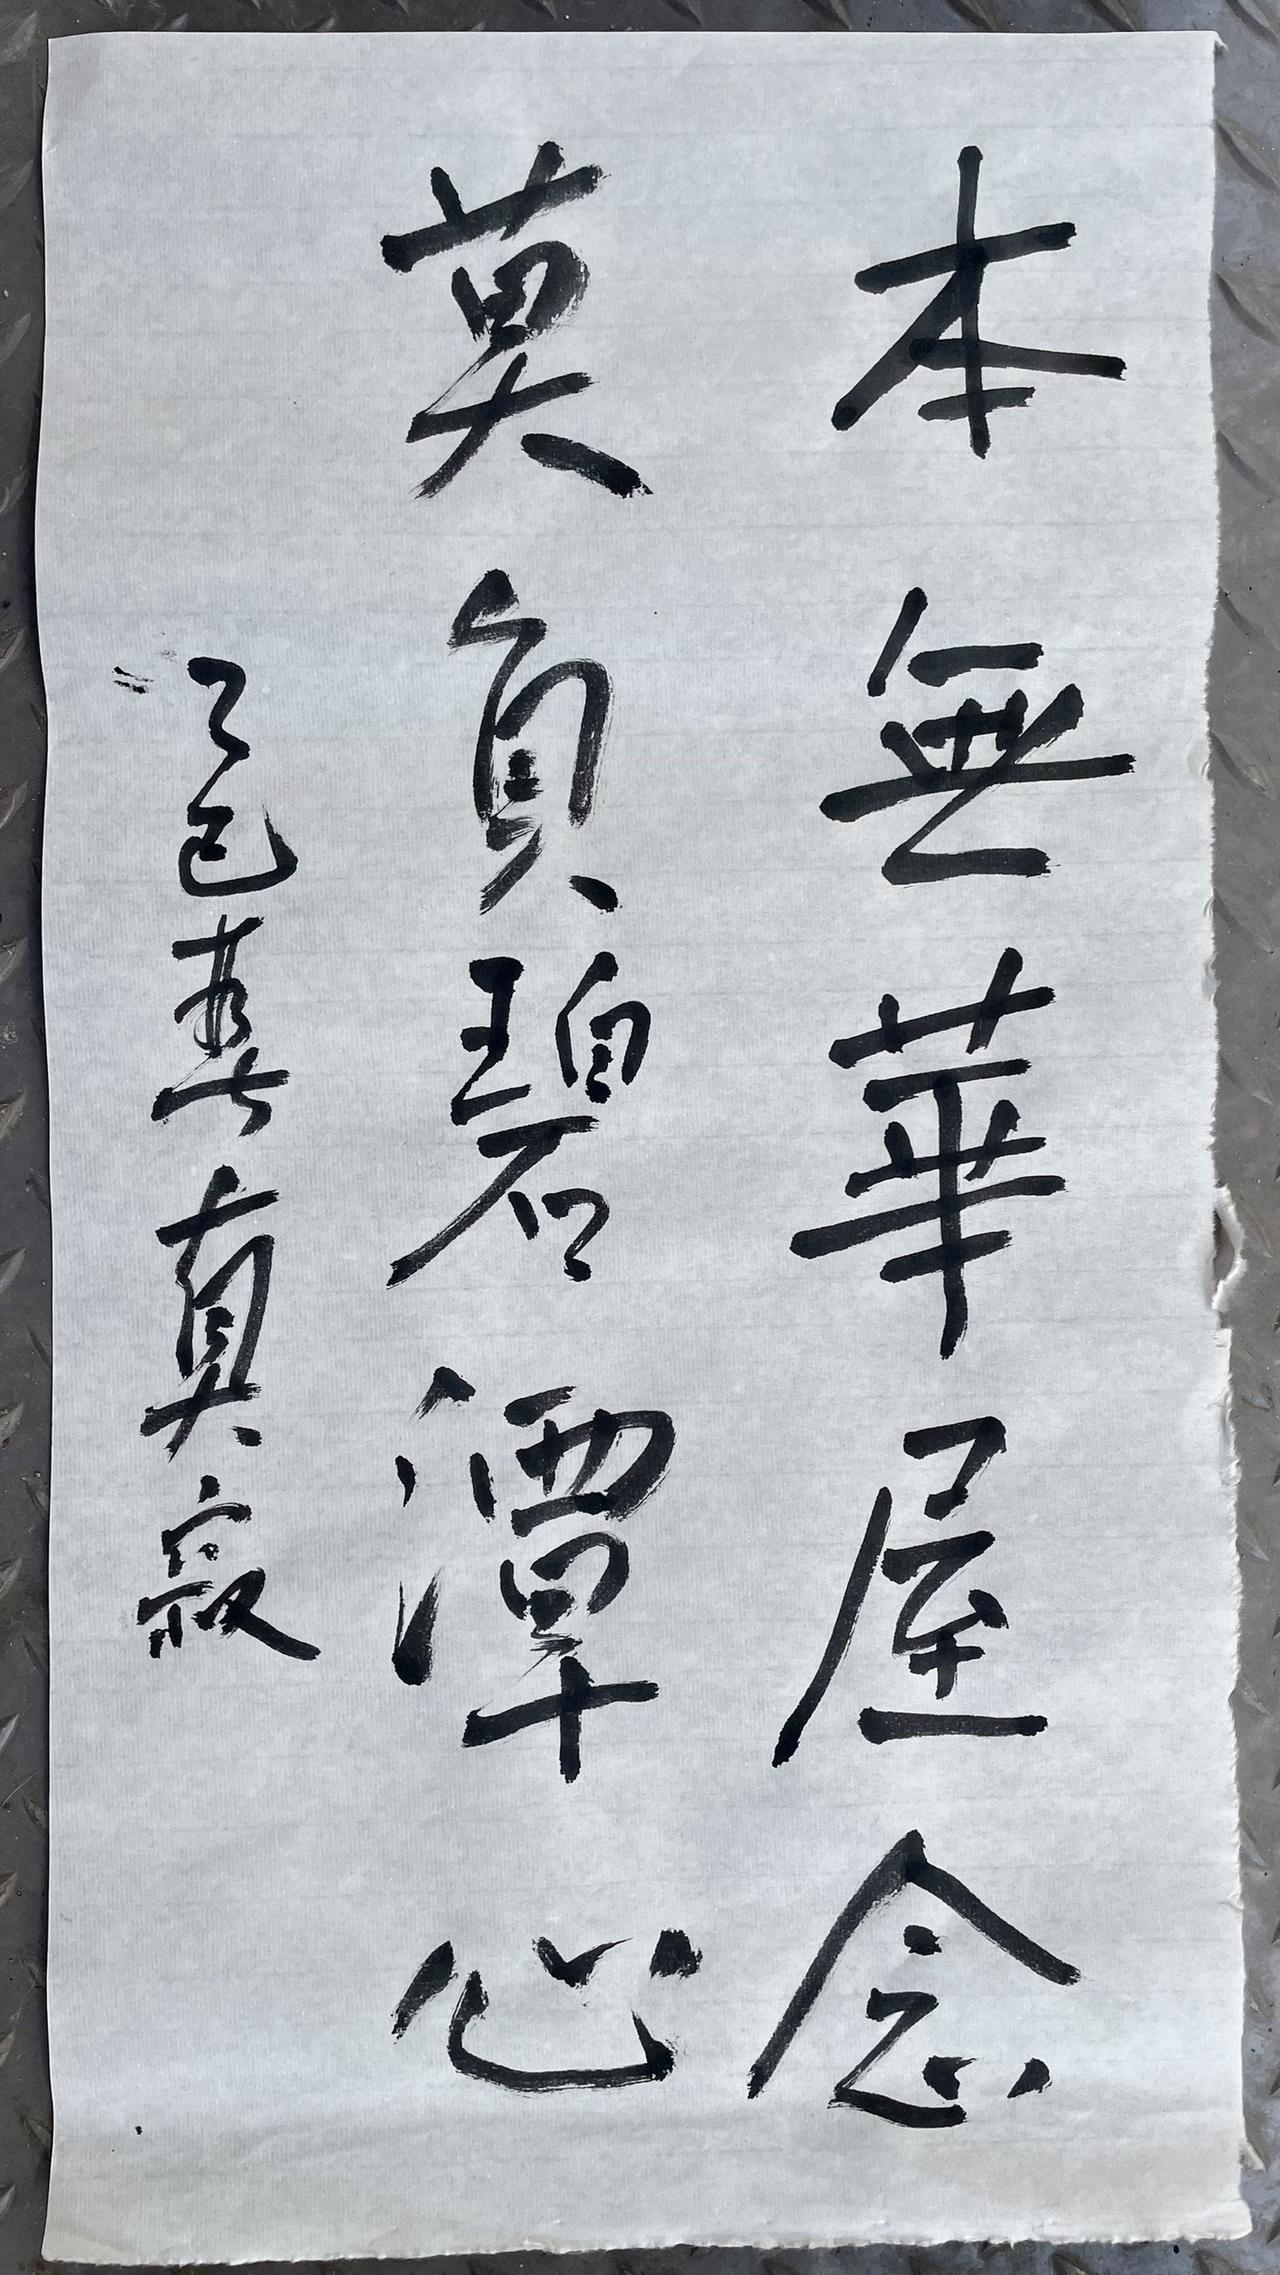 本無華屋念
莫負碧潭心
乙巳春真寂